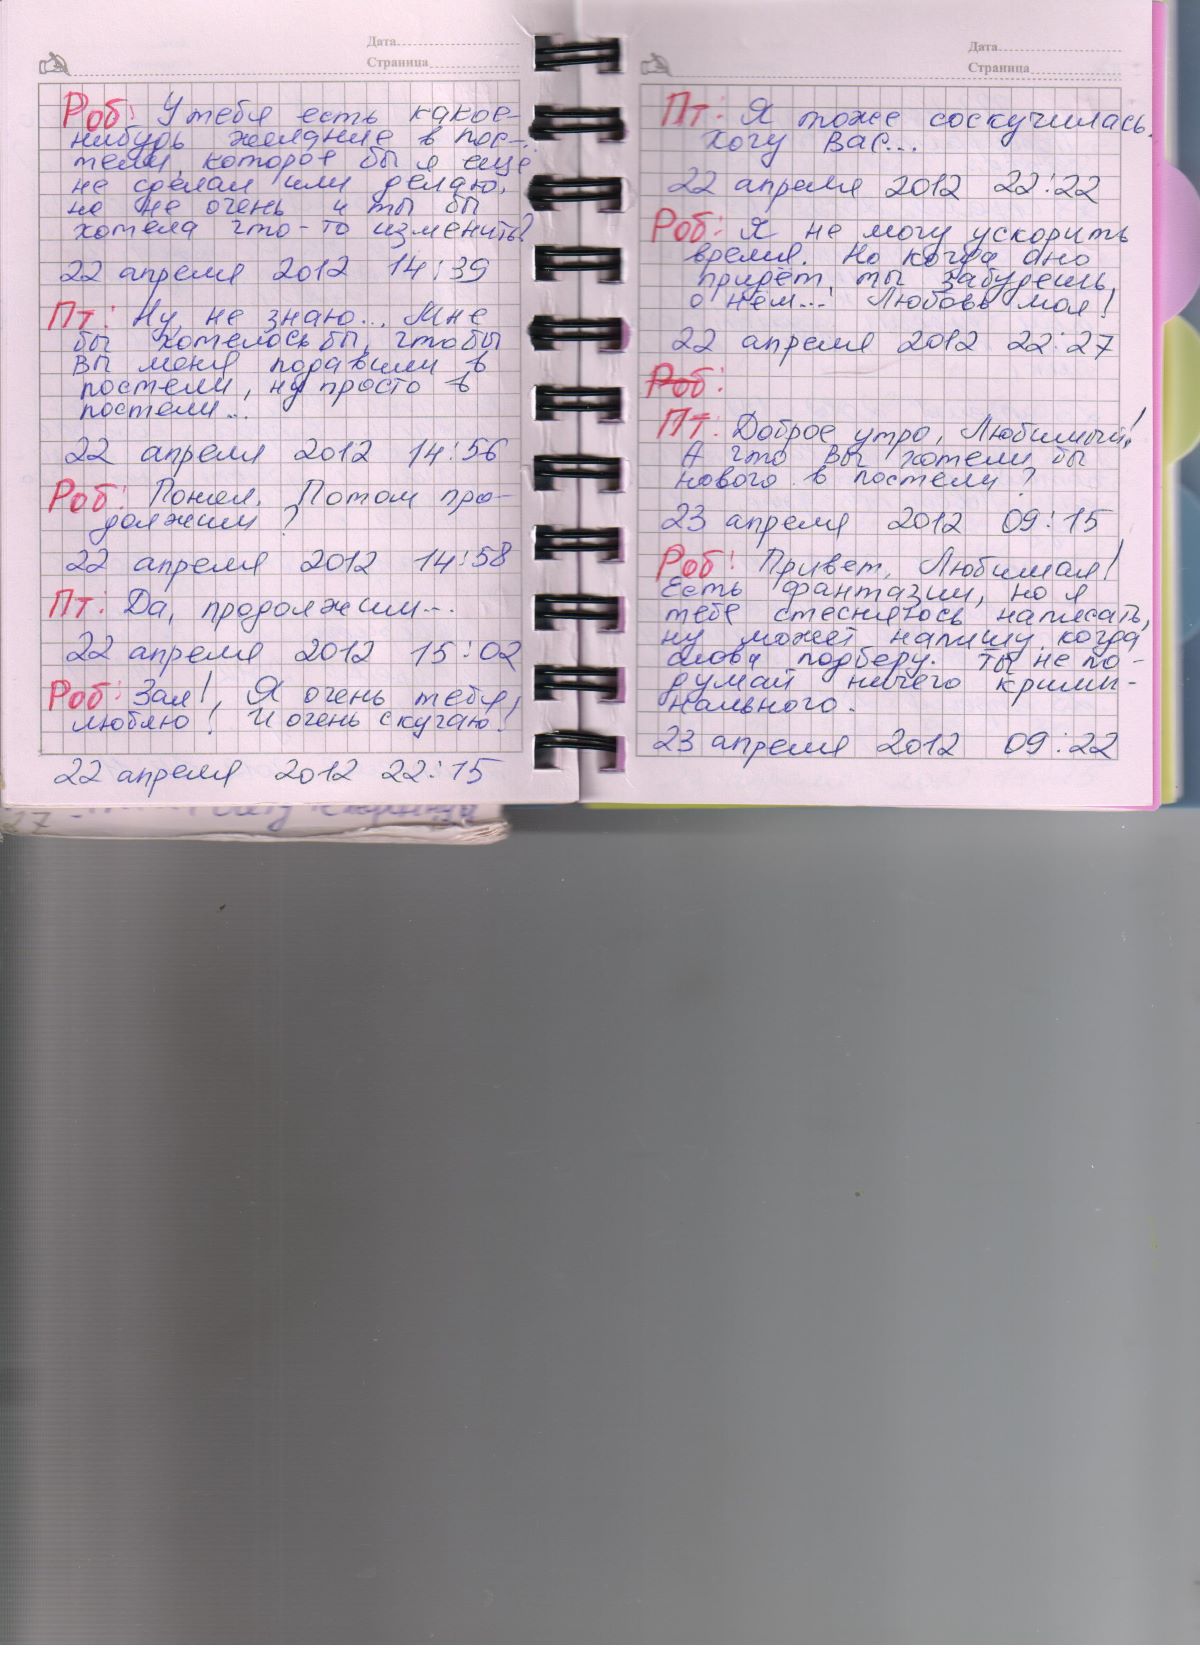 Дата
Страница
Роб: У тебя есть какое-
нибудь желание в пос-
тели, которое бы я ещё
не сделал или делаю,
но не очень и ты бы
хотела что-то изменить?
22 апреля 2012 14:39
Пт: Ну, не знаю... Мне
бы хотелось бы, чтобы
Вы меня подавили в
постели, ну просто в
постели...
22 апреля 2012 14:56
Роб: Понял. Потом про-
должим?
22 апреля 2012 14:58
Пт: Да, продолжим...
22 апреля 2012 15:02
Роб: Зая! Я очень тебя
люблю! И очень скучаю!
22 апреля 2012 22:15
27
Дата
Страница
Пт: Я тоже соскучилась.
Хочу Вас...
22 апреля 2012 22:22
Роб: Я не могу ускорить
время. Но когда оно
придёт, ты забудешь
о нём... Любовь моя!
22 апреля 2012 22:27
Роб:
Пт: Доброе утро, Любимый!
А что Вы хотели бы
нового в постели?
23 апреля 2012 09:15
Роб: Привет, Любимая!
Есть фантазии, но я
тебе стесняюсь написать,
ну может напишу, когда
слова подберу. Ты не по-
думай ничего крими-
нального.
23 апреля 2012 09:22